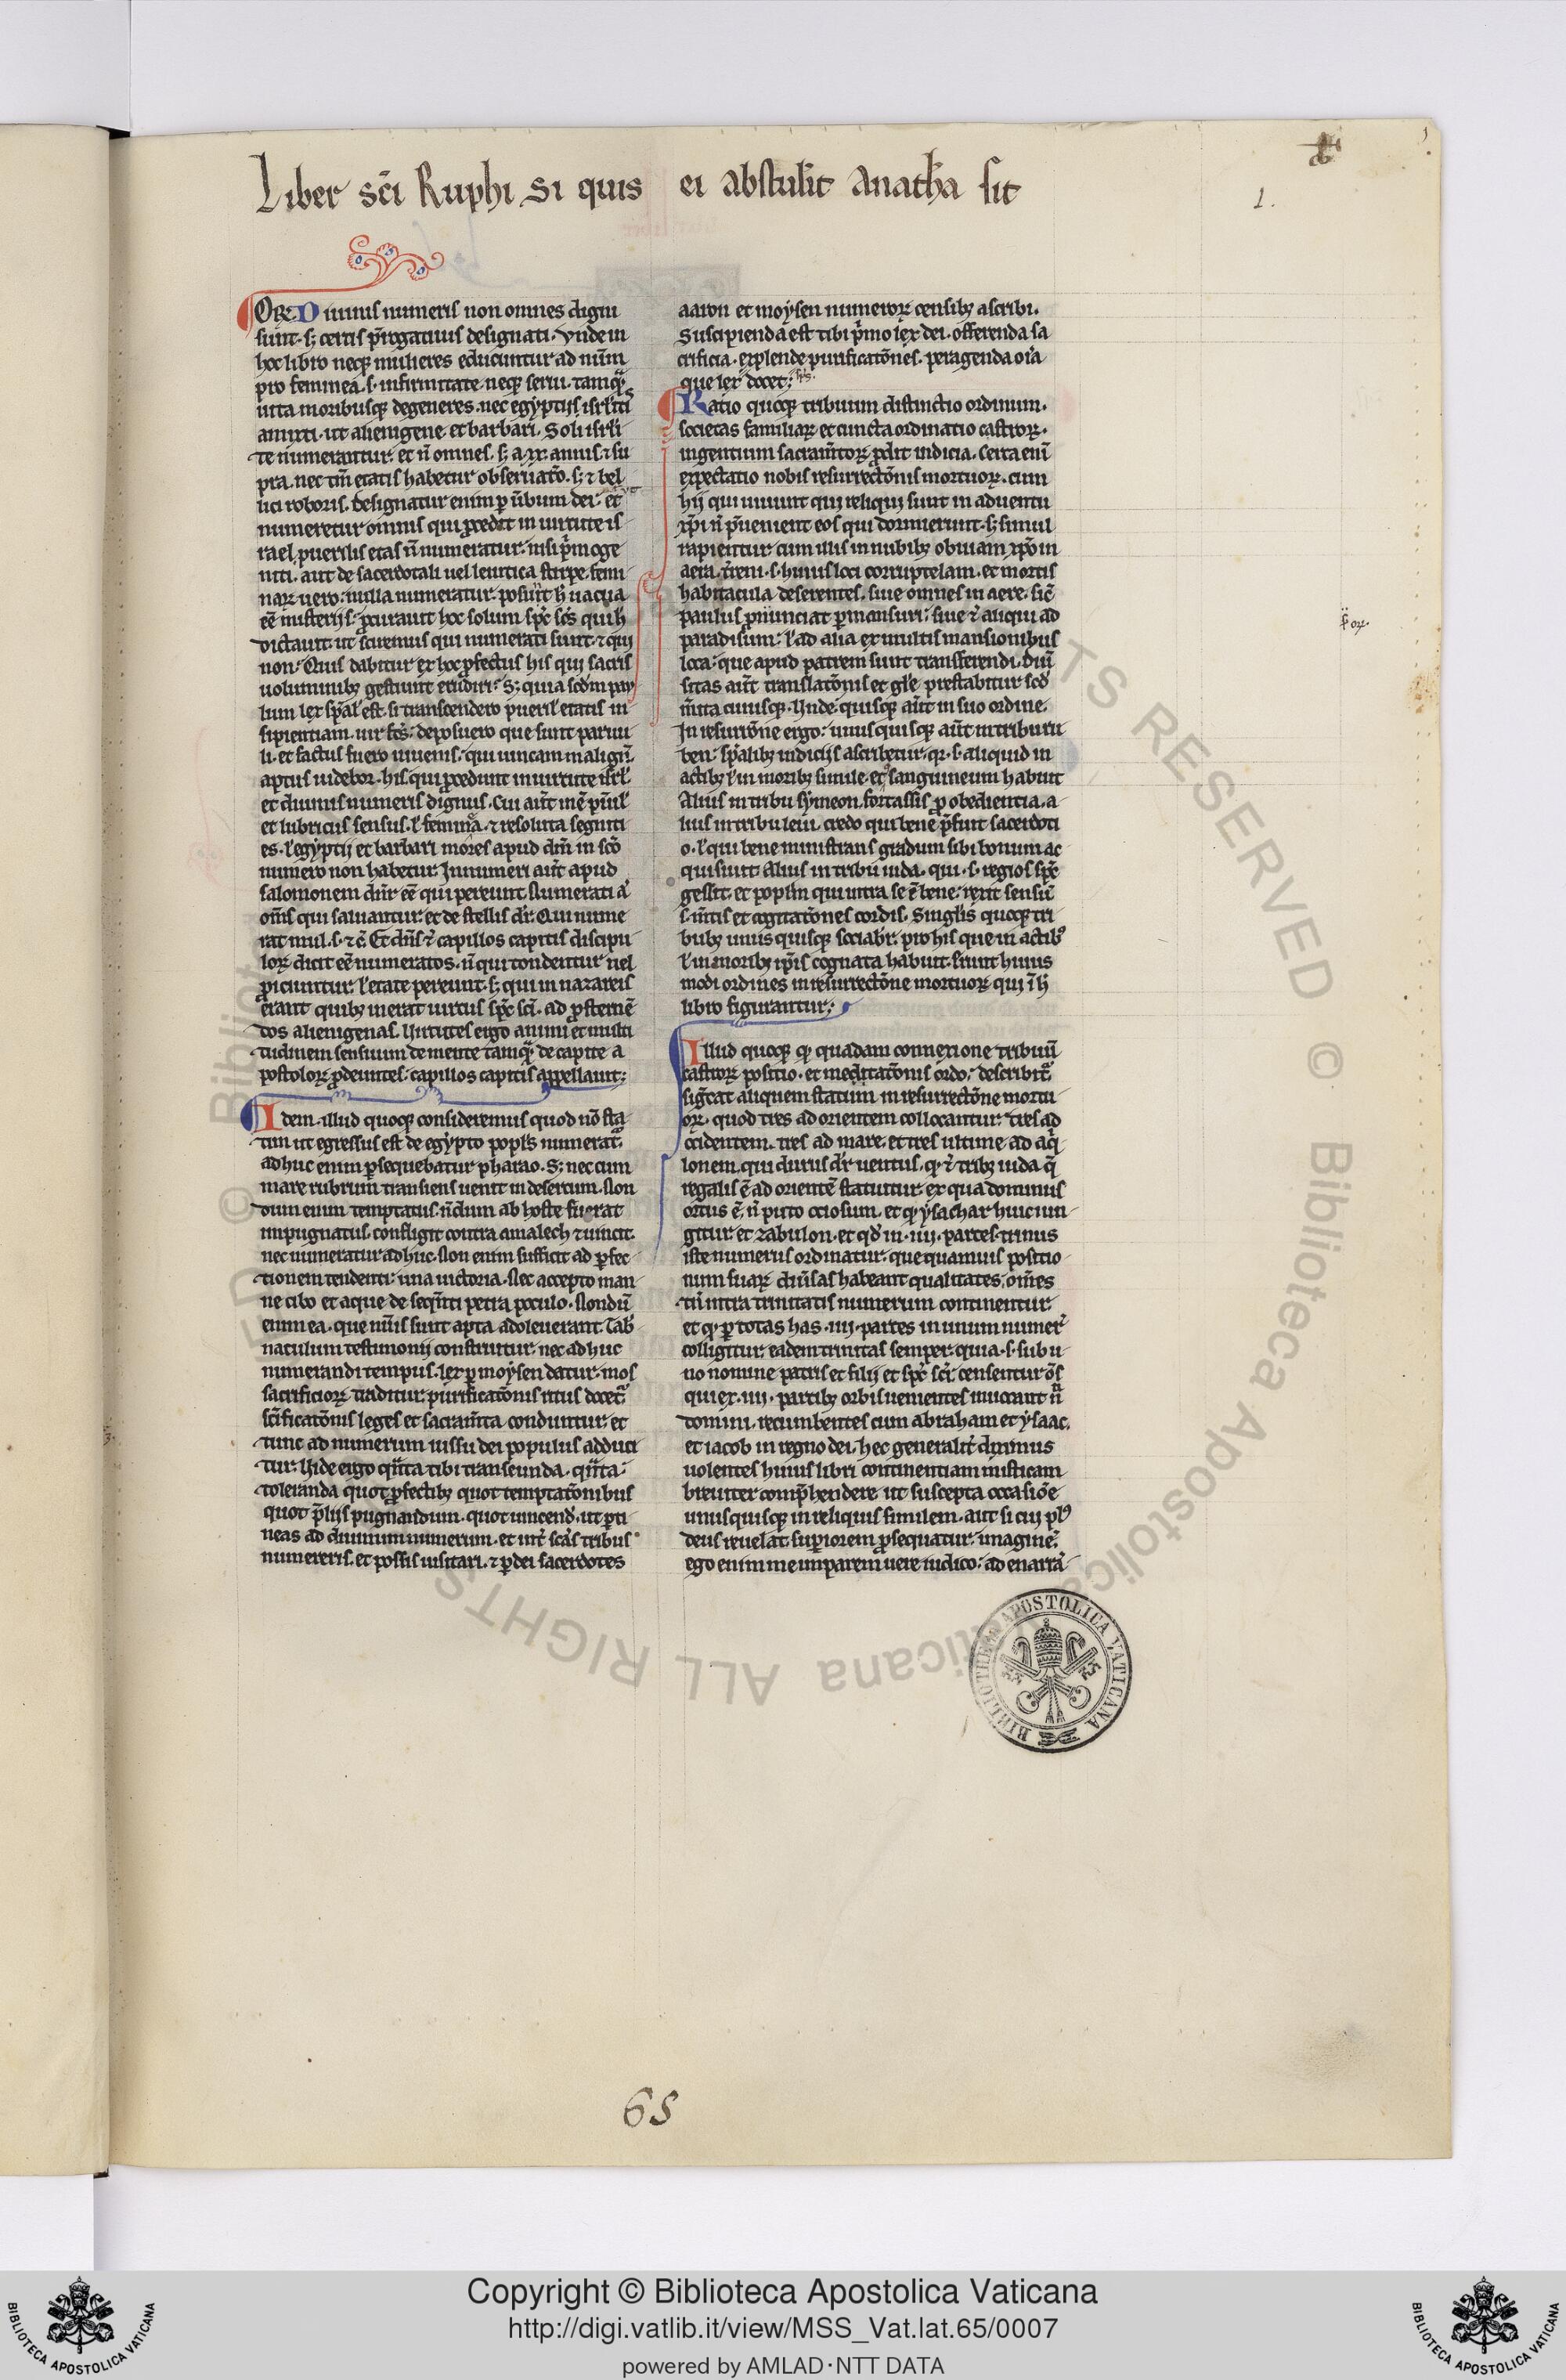 Liber sc̄i Ruphi si quis ei abstulit anatha sit
1.
OR. Diuinis numeris non omnes digni
sunt. s; certis p̄rogatiuis designati. Vnde in
hoc libro neq; mulieres educuntur ad nūm
pro feminea .s. infirmitate. neq; serui. tamq̄
uita moribusq; degeneres. nec egyptij isrl'iti
amixti. ut alienigene et barbari. Soli isrl'i
te numerantur. et n̄ omnes. s; a .xx. annis ⁊ su
pra. nec tm̄ etatis habetur obseruatō. s; ⁊ bel
lici roboris. designatur enim p̱ ūbum dei. et
numeretur omnis qui p̱cedit in uirtute is
rael. puerilis etas n̄ numeratur. nisi p̄moge
niti. aut de sacerdotali uel leuitica stirpe. femi
naꝝ uero. nulla numeratur. posūt h̄ uacua
eē misterijs. p̱curauit hoc solum sp̄c sc̄s qui h̄
dictauit. ut sciremus qui numerati sunt. ⁊ qui
non. Quis dabitur ex hoc p̱fectus his qui sacris
uoluminibꝫ gestiunt erudiri. S; quia scdm pau
lum lex sp̄al' est. si transcendero pueril' etatis in
sipientiam. uir fc̄s. deposuero que sunt paruu
li. et factus fuero iuuenis. qui uincam malignū.
aptus uidebor. his. qui p̱cedunt in uirtute isrl'.
et diuinis numeris dignus. Cui aūt inē p̄uil'
et lubricus sensus. l' feminea. ⁊ resoluta segniti
es. l' egyptij et barbari mores apud dm̄ in sc̄o
numero non habetur. Innumeri aūt apud
salomonem dn̄r eē qui pereunt. Numerati aū
om̄s qui saluantur. et de stellis dr̄. Qui nume
rat mul. s. ⁊ c̄. Et dn̄s ⁊ capillos capitis discipu
loꝝ dicit eē numeratos. n̄ qui tondentur uel
p̱iciuntur. l' etate pereunt. s; qui in nazareis
erant quibꝫ inerat uirtus sp̄c sc̄i. ad p̱sternē
dos alienigenas. Uirtutes ergo animi et multi
tudinem sensuum de mente tamq̄ de capite a
postoloꝝ p̱deuntes. capillos capitis appellauit.
Idem. illud quoq; consideremus quod nō sta
tim ut egressus est de egypto popl's numerat.
adhuc enim p̱sequebatur pharao. S; nec cum
mare rubrum transiens uenit in desertum. Non
dum enim temptatus. n̄dum ab hoste fuerat
impugnatus. confligit contra amalech ⁊ uincit.
nec numeratur adhuc. Non enim sufficit ad p̱fec
tionem tendenti. una uictoria. Nec accepto man
ne cibo et aque de seq̄nti petra poculo. Nondū
enim ea. que nūis sunt apta adoleuerant. Tab
naculum testimonij construitur. nec adhuc
numerandi tempus. lex p̱ moysen datur. mos
sacrificioꝝ traditur. purificatōnis ritus docet
sc̄ificatōnis leges et sacram̄ta conduntur. et
tunc ad numerum iussu dei populus adduci
tur. Uide ergo q̄nta tibi transeunda. q̄nta.
toleranda. quot p̱fectibꝫ quot temptatōnibus
quot p̄lijs pugnandum. quot uincend'. ut p̱ti
neas ad diuinum numerum. et int̄ sc̄as tribus
numereris. et possis uisitari. ⁊ p̱ dei sacerdotes
aaron et moysen numeroꝝ censibꝫ ascribi.
Suscipienda est tibi p̄mo lex dei. offerenda sa
crificia. explende purificatōnes. peragenda oīa
que lex docet. sp̄s.
Ratio quoq; tribuum distinctio ordinum.
societas familiaꝝ et cuncta ordinatio castroꝝ.
ingentium sacram̄toꝝ p̱dit indicia. serta enī
expectatio nobis resurrectōnis mortuoꝝ. cum
hij qui uiuunt qui reliqui sunt in aduentu
xp̄i n̄ p̄uenient eos qui dormierunt. s; simul
rapientur cum illis in nubibꝫ obuiam xp̄o in
aera. t̄reni .s. huius loci corruptelam. et mortis
habitacula deserentes. siue omnes in aere. sic̄
paulus p̄nunciat p̱mansuri. siue ⁊ aliqui ad
paradisum. l' ad alia ex multis mansionibus
loca. que apud patrem sunt transferendi. diū
sitas aūt translatōnis et gl'e prestabitur scd'
m̄ita cuiusq;. Unde. quisq; aūt in suo ordine.
In resurrōne ergo. unusquisq; aūt in tribu ru
ben. sp̄alibꝫ indicijs ascribetur. qꝛ .s. aliquid in
actibꝫ l' in moribꝫ simile et sanguineum habuit
Alius in tribu symeon. fortassis p̱ obedientia. a
lius in tribu leui. credo qui bene p̄fuit sacerdoti
o. l' qui bene ministrans gradum sibi bonum ac
quisiuit. Alius in tribu iuda. qui .s. regios sp̄c
gessit. et popl'm qui intra se ē bene. rexit sensū
.s. m̄tis et cogitatōnes cordis. Singl'is quoq; tri
bubꝫ unus quisq; sociabr. pro his que in actibꝫ
l' in moribꝫ ip̄is cognata habuit. Erunt huius
modi ordines in resurrectōne mortuoꝝ qui ī h̄
libro figurantur.
p̄or.
Illud quoq; qꝫ quadam connexione tribuū
castroꝝ positio. et meditatōnis ordo. describit
sig̅cat aliquem statum in resurrectōne mortu
oꝝ. quod tres ad orientem collocantur. Tres ad
occidentem. tres ad mare. et tres ultime ad aq̄
lonem. qui durus dr̄ uentus. qꝫ ⁊ tribꝫ iuda q̄
regalis ē ad orientē statuitur. ex qua dominus
ortus ē. n̄ puto ociosum. et qꝫ ysachar huic iun
gitur et zabulon. et qd' in .iiij. partes. trinus
iste numerus ordinatur. que quamuis positio
num suaꝝ diūsas habeant qualitates. om̄es
tn̄ intra trinitatis numerum continentur
et qꝫ p̱ totas has .iiij. partes in unum numer
colligitur. eadem trinitas semper. quia .s. sub u
no nomine patris et filij et sp̄c sc̄i censentur ōs
qui ex .iiij. partibꝫ orbis uenientes inuocant n̄
domini. recumbentes cum abraham et ysaac.
et iacob in regno dei. hec generalit̄ diximus
uolentes huius libri continentiam misticam
breuiter comp̄hendere. ut suscepta occasiōe
unusquisq; in reliquis similem. aut si cui pl'
deus reuelat. sup̱iorem p̱sequatur. imaginē.
ego enim me imparem uere iudico. ad enarrā
BIBLIOTHECA APOSTOLICA VATICANA
65
© Biblioteca Apostolica Vaticana ALL RIGHTS RESERVED
Copyright © Biblioteca Apostolica Vaticana
http://digi.vatlib.it/view/MSS_Vat.lat.65/0007
powered by AMLAD·NTT DATA
BIBLIOTECA APOSTOLICA VATICANA
BIBLIOTECA APOSTOLICA VATICANA